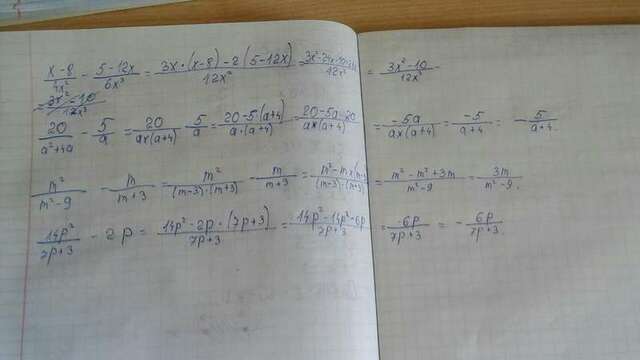 x-8/4x² - 5-12x/6x³ = 3x·(x-8)-2(5-12x)/12x² = 3x²-24x-10+24x/12x² = 3x²-10/12x²
= 3x²-10/12x²
20/a²+4a - 5/a = 20/a×(a+4) - 5/a = 20-5(a+4)/a·(a+4) = 20-5a-20/a×(a+4) = -5a/a×(a+4) = -5/a+4 = -5/a+4.
m²/m²-9 - m/m+3 = m²/(m-3)·(m+3) - m/m+3 = m²-m×(m-3)/(m-3)·(m+3) = m²-m²+3m/m²-9 = 3m/m²-9.
14p²/7p+3 - 2p = 14p²-2p·(7p+3)/7p+3 = 14p²-14p²-6p/7p+3 = -6p/7p+3 = -6p/7p+3